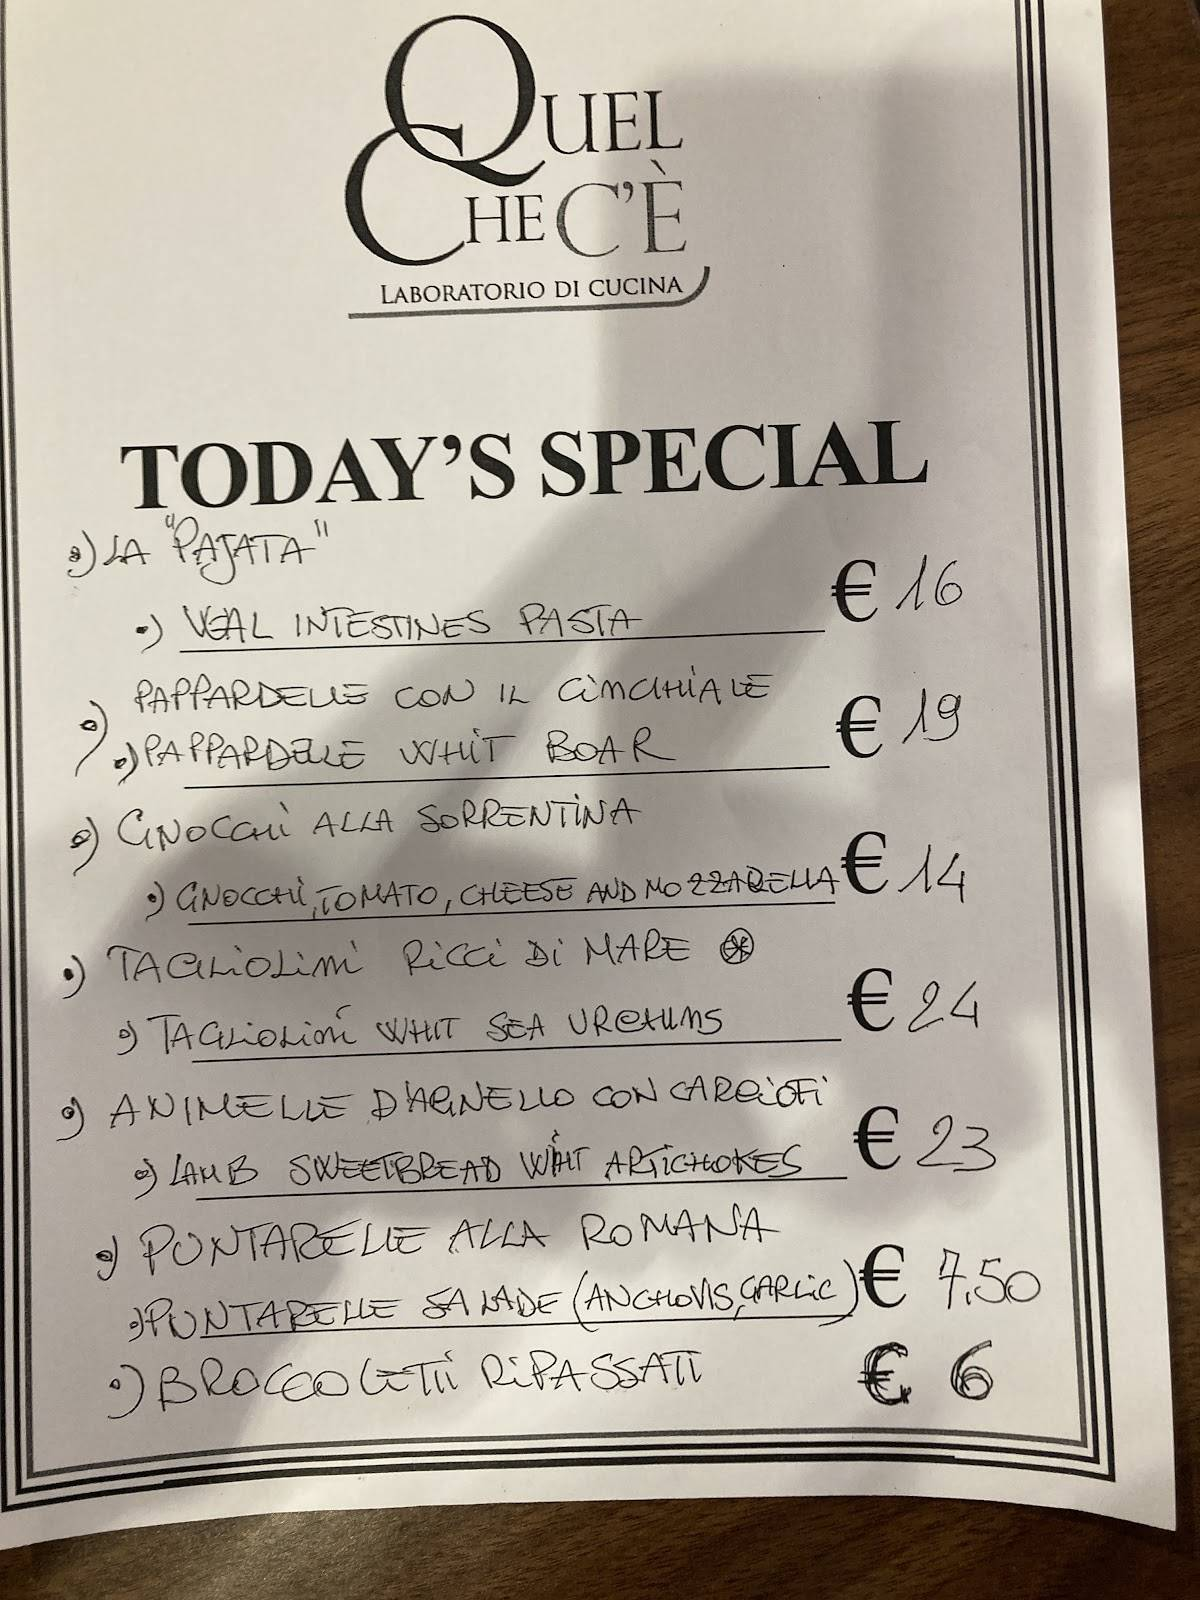 QUEL
CHE C'È
LABORATORIO DI CUCINA
TODAY'S SPECIAL
•) LA "PAJATA"
•) VEAL INTESTINES PASTA € 16
•) PAPPARDELLE CON IL CINCHIALE
•) PAPPARDELLE WHIT BOAR € 19
•) GNOCCHI ALLA SORRENTINA
•) GNOCCHI, TOMATO, CHEESE AND MOZZARELLA € 14
•) TAGLIOLINI RICCI DI MARE ⊛
•) TAGLIOLINI WHIT SEA URCHINS € 24
•) ANIMELLE D'AGNELLO CON CARCIOFI
•) LAMB SWEETBREAD WHIT ARTICHOKES € 23
•) PUNTARELLE ALLA ROMANA
•) PUNTARELLE SALADE (ANCHOVIS, GARLIC) € 7,50
•) BROCCOLETTI RIPASSATI € 6